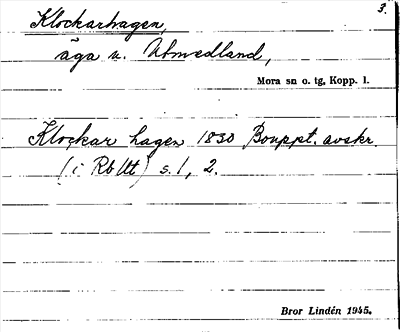 3.
Klockarhagen,
äga u. Utmedland,
Mora sn o. tg, Kopp. l.
Klockar hagen 1830 Bouppt. avskr.
(i Rb Ut) s. 1, 2.
Bror Lindén 1945.